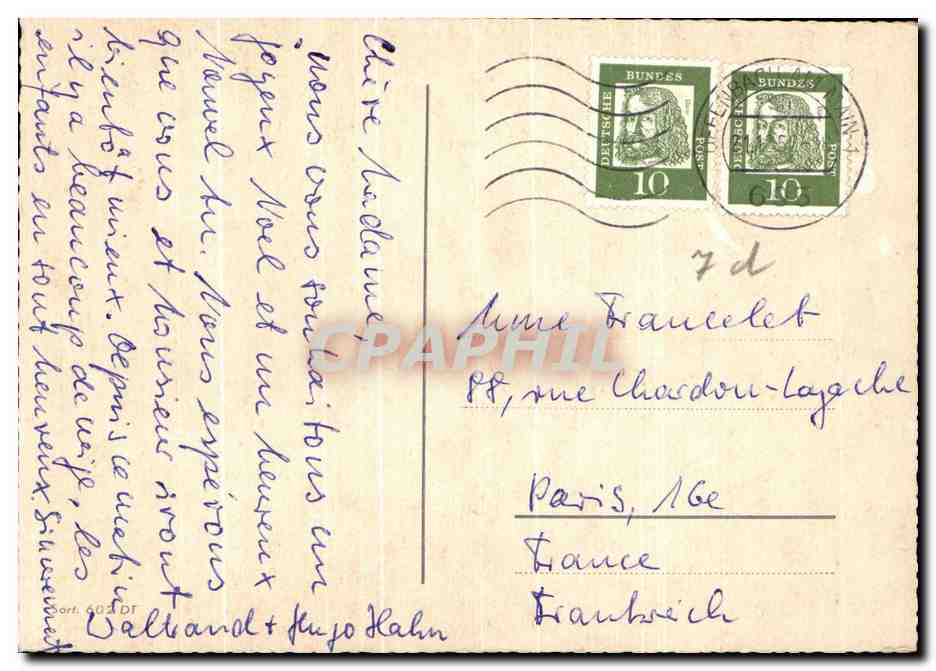 Chère Madame,
nous vous souhaitons un
joyeux Noel et un heureux
Nouvel An. Nous espérons
que vous et Monsieur iront
bientôt mieux. Depuis ce matin
il y a beaucoup de neige, les
enfants en sont heureux. Sincerement
Waltraud + Hugo Hahn
Sort. 602 DT
DEUTSCHE
BUNDES
POST
10
DEUTSCHE
BUNDES
POST
10
7d
Mme Francelet
88, rue Chardon-Lagache
Paris, 16e
France
Frankreich
CPAPHIL